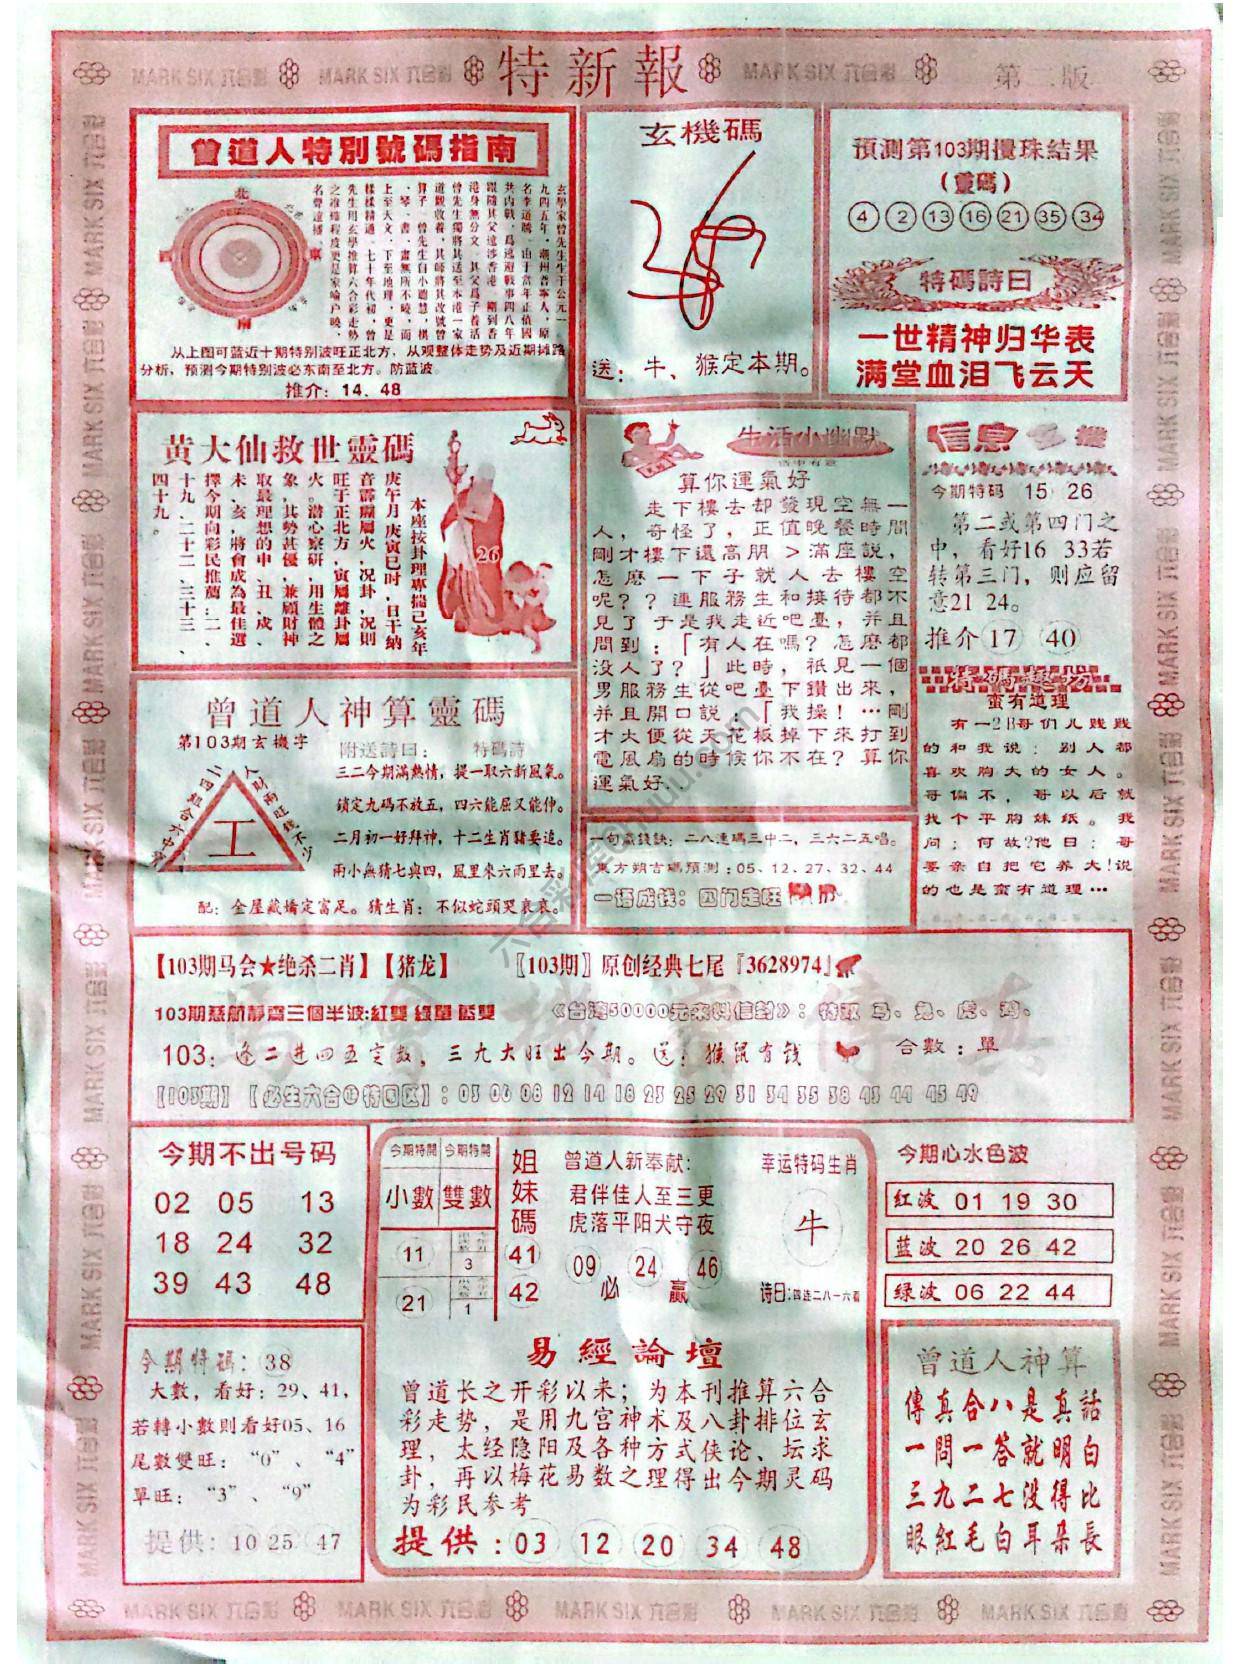 特新報
第二版
MARK SIX 六合彩
曾道人特別號碼指南
北
東
南
玄學家曾先生生于公元一
九四五年，潮州普寧人，原
名李道勝，由于當年正值國
共内戰，爲逃避戰事四八年
跟隨其父遠涉香港，剛到香
港身無分文，其父爲了養活
曾先生獨將其送至本港一家
道觀收養，其師將其改號曾
算子，曾先生自小聰慧，棋
、琴、書、畫無所不曉，而
上至天文，下至地理，更是
樣樣精通，七十年代初，曾
先生用玄學推算六合彩走勢
之准確程度更是家喻户曉，
名聲遠播。
从上图可蓝近十期特别波旺正北方，从观整体走势及近期摊路
分析，预测今期特别波必东南至北方。防蓝波。
推介：14．48
玄機碼
送：牛、猴定本期。
預測第103期攪珠結果
(靈碼)
4 2 13 16 21 35 34
特碼詩曰
一世精神归华表
满堂血泪飞云天
黄大仙救世靈碼
本座按卦理專揣己亥年
庚午月庚寅巳时，日干納
音霹靂屬火，况卦，况則
旺于正北方，寅屬離卦屬
火。潜心察研，用生體之
象，其勢甚優，兼顧財神
取最理想的申、丑、戌、
未、亥，將會成為最佳選
擇今期向彩民推薦：二、
十九、二十二、三十三、
四十九。
26
生活小幽默
算你運氣好
走下樓去却發現空無一
人，奇怪了，正值晚餐時間
剛才樓下還高朋＞滿座説，
怎麽一下子就人去樓空
呢？？連服務生和接待都不
見了 于是我走近吧臺，并且
問到：「有人在嗎？怎麽都
没人了？」此時，衹見一個
男服務生從吧臺下鑽出來，
并且開口説：「我操！…剛
才大便從天花板掉下來打到
電風扇的時候你不在？算你
運氣好.
信息玄機
今期特码 15 26
第二或第四门之
中，看好16 33若
转第三门，则应留
意21 24。
推介17 40
猜碼趣分
蛮有道理
有一2B哥们儿贱贱
的和我说：别人都
喜欢胸大的女人。
哥偏不，哥以后就
找个平胸妹纸。我
问：何故?他日：哥
要亲自把它养大!说
的也是蛮有道理…
曾道人神算靈碼
第103期玄機字
附送詩曰：
特碼詩
工
三二今期滿熱情，提一取六新風氣。
鎖定九碼不放五，四六能屈又能伸。
二月初一好拜神，十二生肖豬要追。
兩小無猜七與四，風里來六雨里去。
配：金屋藏嬌定富足。猜生肖：不似蛇頭哭哀哀。
一句贏錢訣：二八連碼三中二，三六二五唱。
東方朔吉碼預測：05、12、27、32、44
一语成钱：四门走旺
【103期马会★绝杀二肖】【猪龙】
〖103期〗原创经典七尾『3628974』
103期慈航靜齋三個半波:紅雙 綠單 藍雙
《台湾50000元来料信封》：特双 马、兔、虎、鸡、
103：逢二进四五定数，三九大旺出今期。送：猴鼠有钱
合數：單
【103期】【必生六合β特回区】：03 06 08 12 14 18 23 25 29 31 34 35 38 43 44 45 49
今期不出号码
02 05 13
18 24 32
39 43 48
今期特開 今期特開
小數 雙數
11
3
21
1
姐妹碼
41
42
曾道人新奉献:
君伴佳人至三更
虎落平阳犬守夜
09 24 46
必 赢
幸运特码生肖
牛
诗曰:四连二八一六看
今期心水色波
红波 01 19 30
蓝波 20 26 42
绿波 06 22 44
今期特碼：38
大數，看好：29、41，
若轉小數則看好05、16
尾數雙旺：“0”、“4”
單旺：“3”、“9”
提供：10 25 47
易經論壇
曾道长之开彩以来；为本刊推算六合
彩走势，是用九宫神木及八卦排位玄
理，太经隐阳及各种方式侠论、坛求
卦，再以梅花易数之理得出今期灵码
为彩民参考
提供：03 12 20 34 48
曾道人神算
傳真合八是真話
一問一答就明白
三九二七没得比
眼紅毛白耳朵長